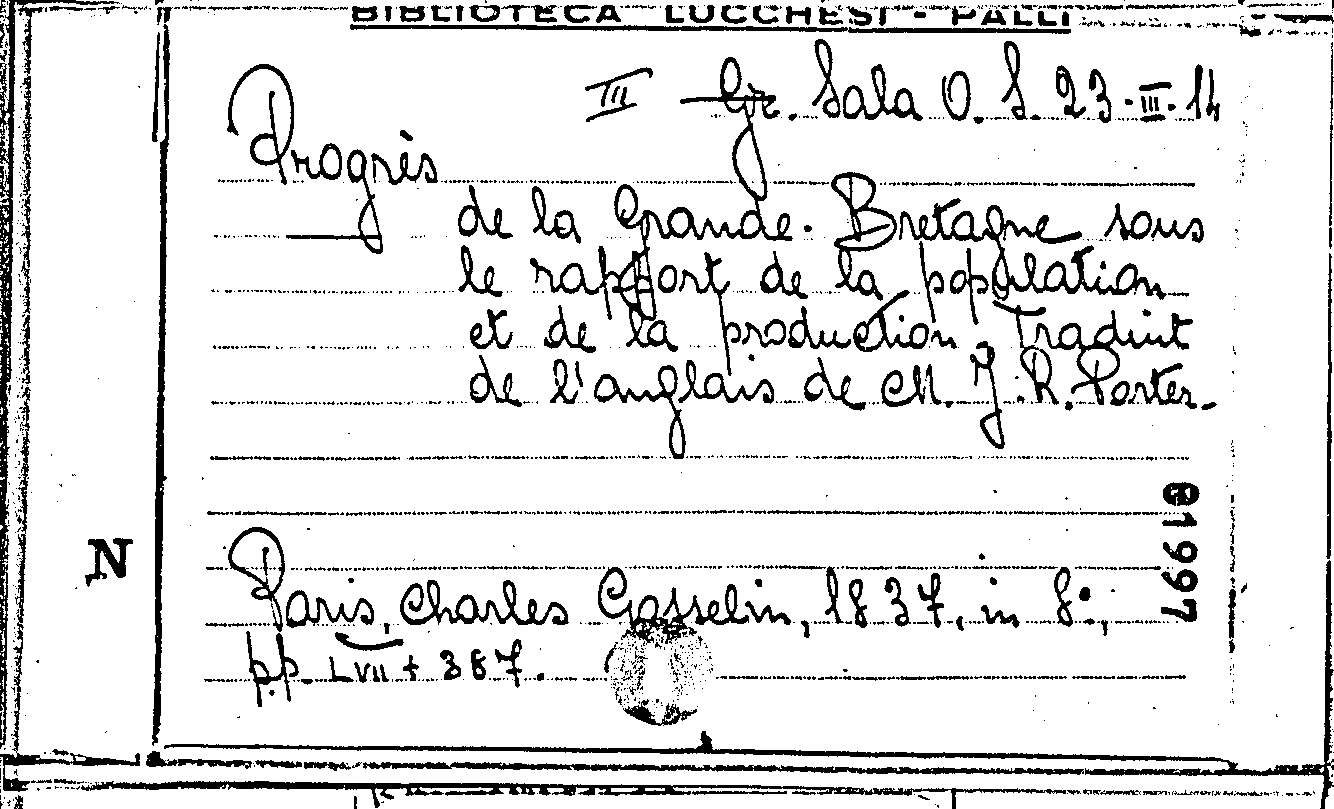 BIBLIOTECA LUCCHESI - PALLI
III Gr. Sala O. S. 23.III.14
Progrès
de la Grande-Bretagne sous
le rapport de la population
et de la production. Traduit
de l'anglais de M. J. R. Porter.
N
61997
Paris, Charles Gosselin, 1837, in 8°.,
pp. LVII + 387.